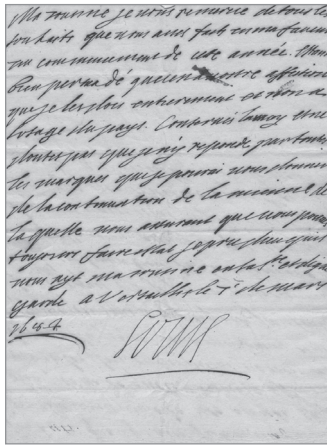 Ma cousine je vous remercie de tous les
souhaits que vous aues faits en ma faueur
au commencement de cette année.
bien persuadé que
que je les dois entierement et non a
lusage du pays. Conserués la moy
doutes pas que je ny reponde par toutes
les marques que je pouray vous donner
de la continuation de la mienne
la quelle vous assurant que vous pouués
tousjours faire estat je prie dieu quil
vous ayt ma cousine en sa ste et digne
garde a Versailles le de mars
Louis